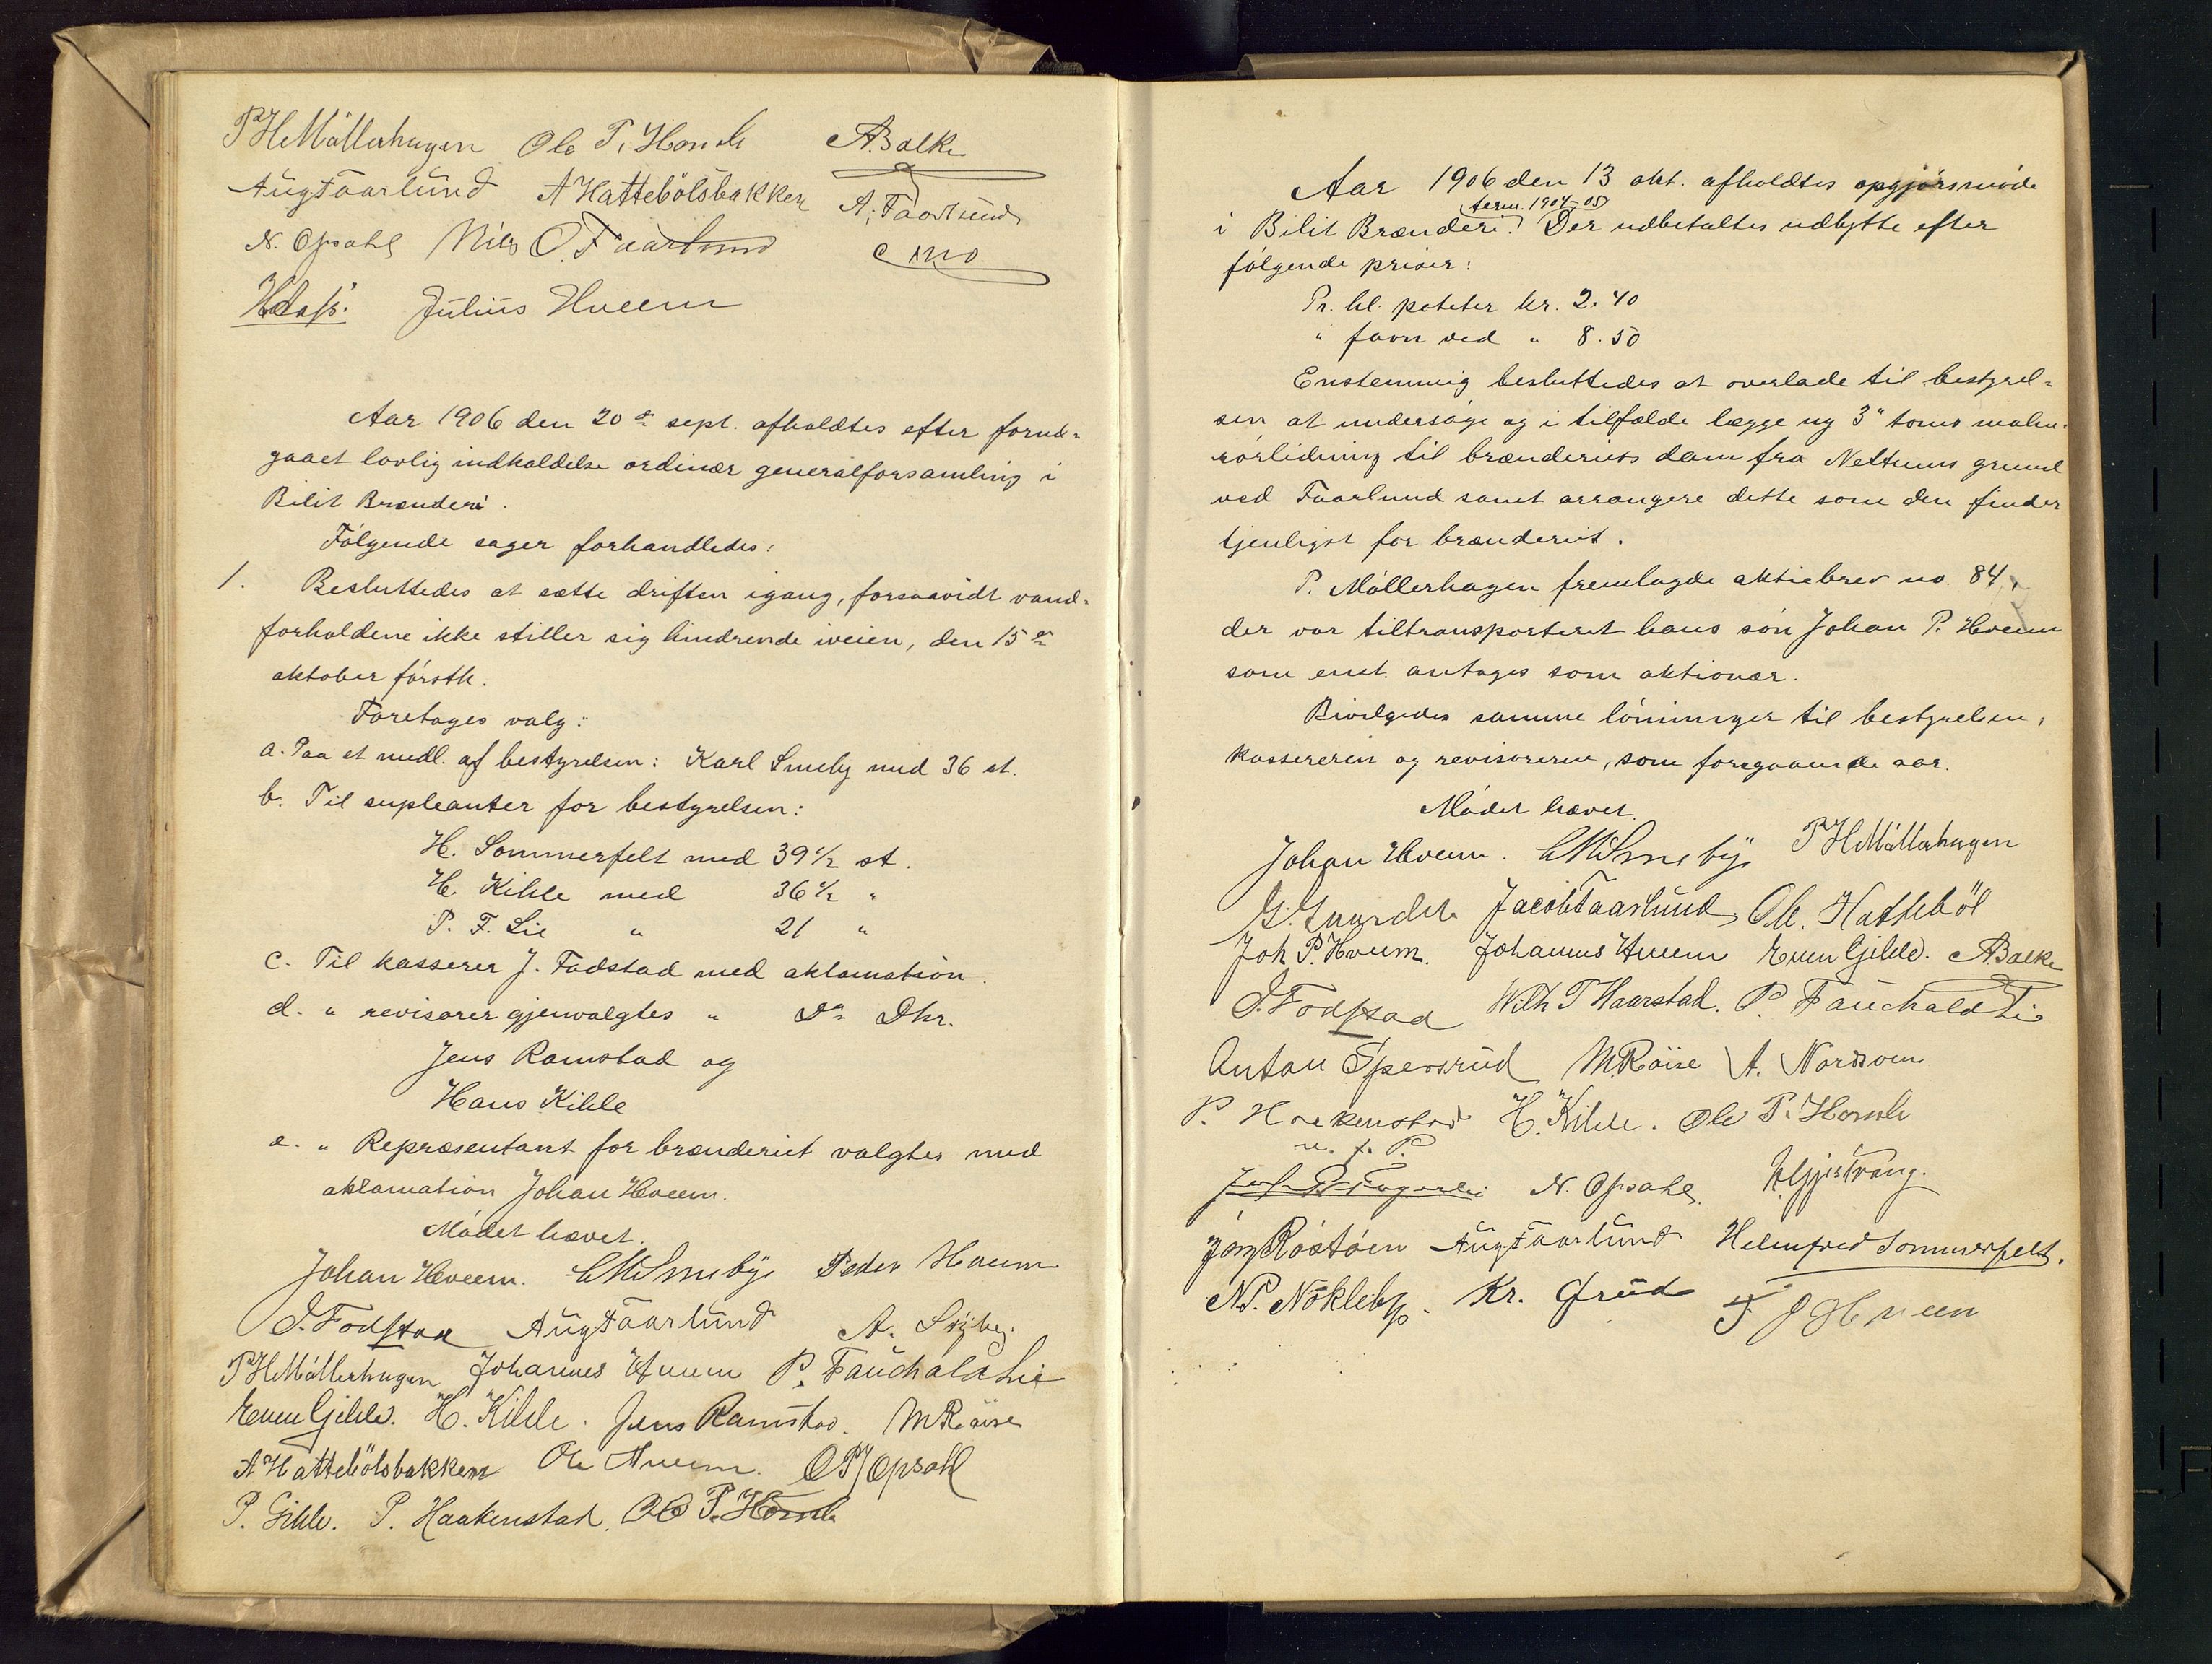 P H Möllerhagen Ole P. Hornsle A. Balke
Aug Faarlund A Hattebölsbakken A. Faarlund
N. Opsahl Nils O. Faarlund
Julius Hveem
Aar 1906 den 20de sept. afholdtes efter forud-
gaaet lovlig indkaldelse ordinær generalforsamling i
Bilit Brænderi.
Følgende sager forhandledes:
1. Besluttedes at sætte driften igang, forsaavidt vand-
forholdene ikke stiller sig hindrende iveien, den 15de
oktober førstk.
Foretages valg:
a. Paa et medl. af bestyrelsen: Karl Smeby med 36 st.
b. Til supleanter for bestyrelsen:
H. Sommerfelt med 39 1/2 st.
H. Kihle med 36 1/2 "
P. F. Lie " 21 "
c. Til kasserer J. Fodstad med aklamation.
d. " revisorer gjenvalgtes " Do Dhr.
Jens Ramstad og
Hans Kihle
e. " Repræsentant for brænderiet valgtes med
aklamation Johan Hveem.
Mødet hævet.
Johan Hveem. C M Smeby Peder Hveem
J. Fodstad Aug Faarlund A.
P H Möllerhagen Johannes Hveem P. Fauchald Lie
Even Gihle. H. Kihle. Jens Ramstad. M Röise
A Hattebölsbakken Ole Hveem. O P Opsahl
P. Gihle. P. Haakenstad. Ole P. Hornsle
Aar 1906 den 13 okt. afholdtes opgjørsmøde
term. 1904-05
i Bilit Brænderi. Der udbetaltes udbytte efter
følgende priser:
Pr. hl. poteter kr. 2.40
" favn ved " 8.50
Enstemmig besluttedes at overlade til bestyrel-
sen at undersøge og i tilfælde lægge ny 3" toms
rørledning til brænderiets dam fra Nettums grund
ved Faarlund samt arrangere dette som den finder
tjenligst for brænderiet.
P. Möllerhagen fremlagde aktiebrev no. 84,
der var tiltransporteret hans søn Johan P. Hveem
som enst. antages som aktionær.
Bevilgedes samme lønninger til bestyrelsen,
kassereren og revisorerne, som foregaaende aar.
Mødet hævet.
Johan Hveem. C M Smeby P H Möllerhagen
Jacob Faarlund Ole Hatteböl
Joh P. Hveem. Johannes Hveem Even Gihle. A. Balke
J. Fodstad Wilh T Haarstad. P. Fauchald Lie
Anton Spersrud M. Röise A. Nordsveen
P. Haakenstad H. Kihle. Ole P. Hornsle
N. Opsahl
Röstöen Aug Faarlund Helmfred Sommerfelt.
N.P. Nökleby. Kr. Grüd J Hveem